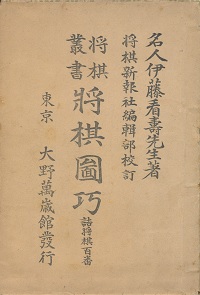 名人伊藤看壽先生著
將棋新報社編輯部校訂
將棋叢書
將棋圖巧
詰將棋百番
東京 大野萬歲館發行